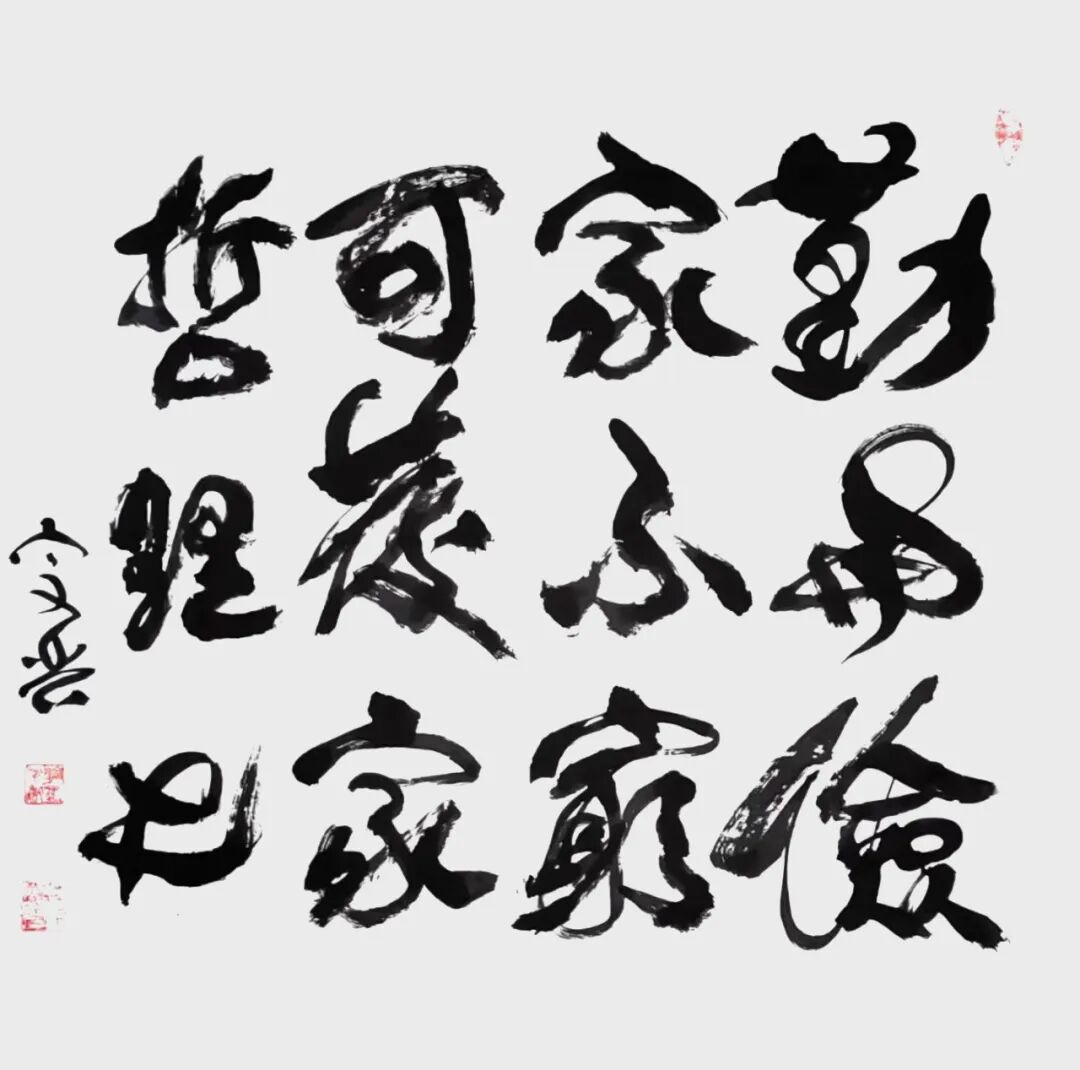 勤与儉
家不窮
可發家
哲理也